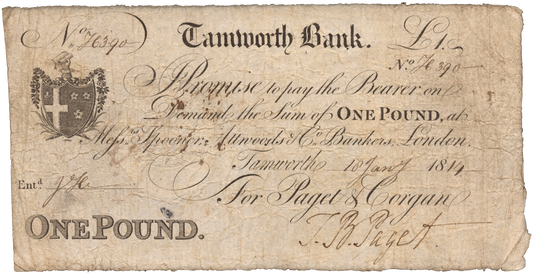 No. 76390 Tamworth Bank. £1.
No. 76390
I Promise to pay the Bearer on
Demand the Sum of ONE POUND, at
Messrs. Spooner, Attwoods & Co. Bankers, London.
Tamworth 10 Jany 1814
Entd.
For Paget & Corgan
ONE POUND.
T. B. Paget.